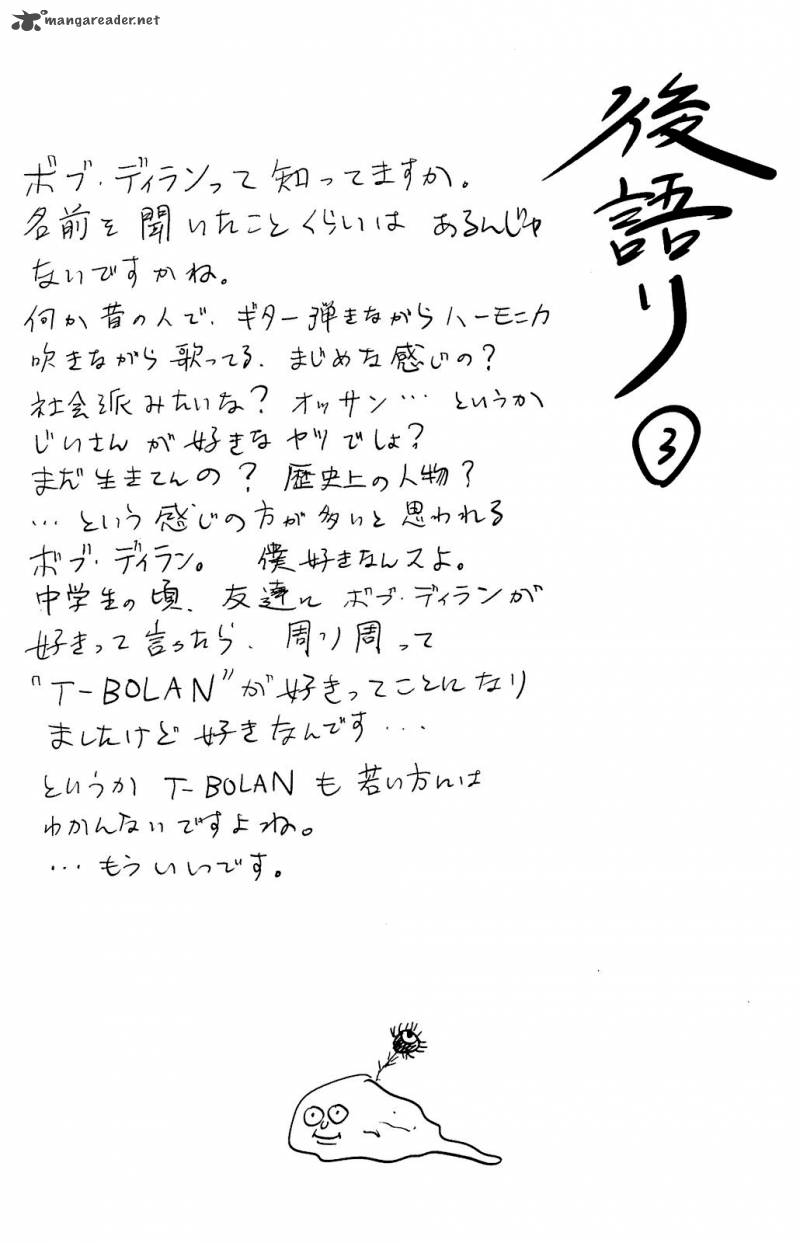 mangareader.net
後語り
3
ボブ・ディランって知ってますか。
名前を聞いたことくらいはあるんじゃ
ないですかね。
何か昔の人で、ギター弾きながらハーモニカ
吹きながら歌ってる、まじめな感じの?
社会派みたいな?オッサン…というか
じいさんが好きなヤツでしょ?
まだ生きてんの?歴史上の人物?
…という感じの方が多いと思われる
ボブ・ディラン。僕好きなんスよ。
中学生の頃、友達にボブ・ディランが
好きって言ったら、周り周って
"T-BOLAN"が好きってことになり
ましたけど好きなんです・・・
というかT-BOLANも若い方には
わかんないですよね。
…もういいです。